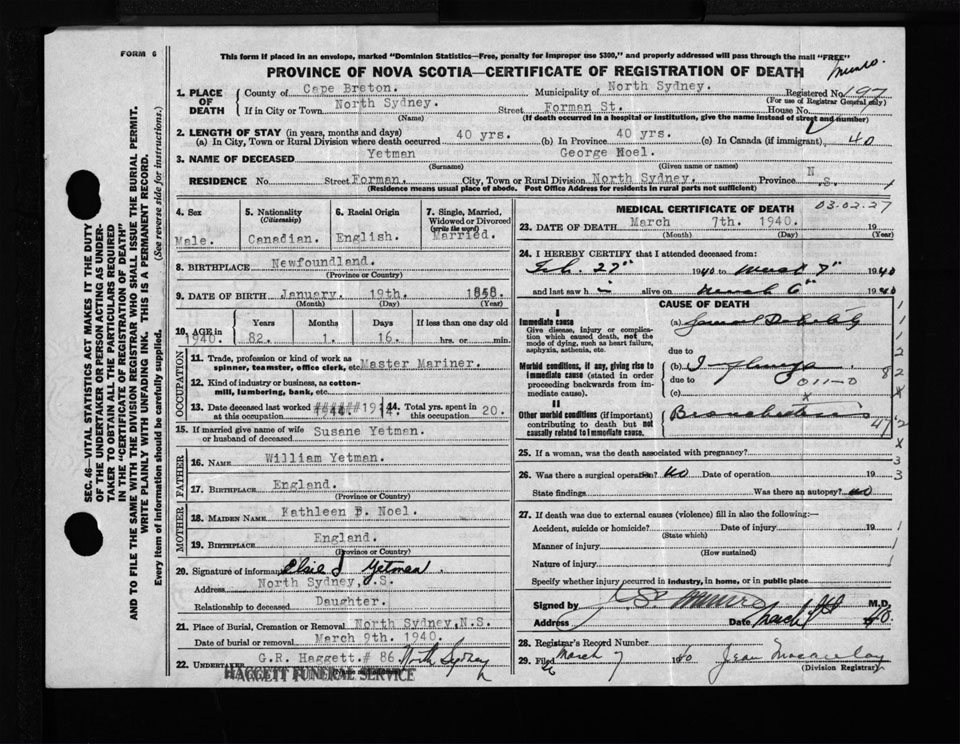 FORM 6
This form if placed in an envelope, marked "Dominion Statistics—Free, penalty for improper use $300," and properly addressed will pass through the mail "FREE"
PROVINCE OF NOVA SCOTIA—CERTIFICATE OF REGISTRATION OF DEATH
Munro.
1. PLACE OF DEATH
County of Cape Breton. Municipality of North Sydney. Registered No. 197
(For use of Registrar General only)
If in City or Town North Sydney. Street Forman St. House No.
(Name) (If death occurred in a hospital or institution, give the name instead of street and number)
2. LENGTH OF STAY (in years, months and days)
(a) In City, Town or Rural Division where death occurred 40 yrs. (b) In Province 40 yrs. (c) In Canada (if immigrant) 40
3. NAME OF DECEASED Yetman George Noel.
(Surname) (Given name or names)
RESIDENCE No. Street Forman. City, Town or Rural Division North Sydney. Province N.S.
(Residence means usual place of abode. Post Office Address for residents in rural parts not sufficient)
SEC. 46—VITAL STATISTICS ACT MAKES IT THE DUTY
OF THE UNDERTAKER OR PERSON ACTING AS UNDER-
TAKER TO OBTAIN ALL THE PARTICULARS REQUIRED
IN THE "CERTIFICATE OF REGISTRATION OF DEATH"
AND TO FILE THE SAME WITH THE DIVISION REGISTRAR WHO SHALL ISSUE THE BURIAL PERMIT.
WRITE PLAINLY WITH UNFADING INK. THIS IS A PERMANENT RECORD.
Every item of information should be carefully supplied. (See reverse side for instructions.)
4. Sex
Male.
5. Nationality
(Citizenship)
Canadian.
6. Racial Origin
English.
7. Single, Married, Widowed or Divorced
(write the word)
Married.
8. BIRTHPLACE Newfoundland.
(Province or Country)
9. DATE OF BIRTH January. 19th. 1858.
(Month) (Day) (Year)
10. AGE in 1940.
Years Months Days If less than one day old
82. 1. 16. hrs. or min.
OCCUPATION
11. Trade, profession or kind of work as spinner, teamster, office clerk, etc. Master Mariner.
12. Kind of industry or business, as cotton-mill, lumbering, bank, etc.
13. Date deceased last worked at this occupation 1914.
14. Total yrs. spent in this occupation 20.
15. If married give name of wife or husband of deceased Susane Yetman.
FATHER
16. NAME William Yetman.
17. BIRTHPLACE England.
(Province or Country)
MOTHER
18. MAIDEN NAME Kathleen B. Noel.
19. BIRTHPLACE England.
(Province or Country)
20. Signature of informant Elsie J Yetman.
Address North Sydney, N.S.
Relationship to deceased Daughter.
21. Place of Burial, Cremation or Removal North Sydney, N.S.
Date of burial or removal March 9th. 1940.
22. UNDERTAKER G.R. Haggett. # 86 North Sydney
HAGGETT FUNERAL SERVICE
MEDICAL CERTIFICATE OF DEATH 03.02.27
23. DATE OF DEATH March 7th. 1940. 19
(Month) (Day) (Year)
24. I HEREBY CERTIFY that I attended deceased from:
Feb. 27" 1940 to March 7" 1940
and last saw h im alive on March 6" 1940
CAUSE OF DEATH
I
Immediate cause
Give disease, injury or complication which caused death, not the mode of dying, such as heart failure, asphyxia, asthenia, etc.
(a) General Debility
due to
Morbid conditions, if any, giving rise to immediate cause (stated in order proceeding backwards from immediate cause).
(b) Influenza
due to 011-0
(c)
II
Other morbid conditions (if important) contributing to death but not causally related to immediate cause.
Bronchitis
25. If a woman, was the death associated with pregnancy?
26. Was there a surgical operation? No Date of operation 19
State findings Was there an autopsy? No
27. If death was due to external causes (violence) fill in also the following:—
Accident, suicide or homicide? Date of injury 19
(State which)
Manner of injury
(How sustained)
Nature of injury
Specify whether injury occurred in industry, in home, or in public place
Signed by Munro M.D.
Address Date March 1940.
28. Registrar's Record Number
29. Filed March 7 1940 Jean Macaulay
(Division Registrar)